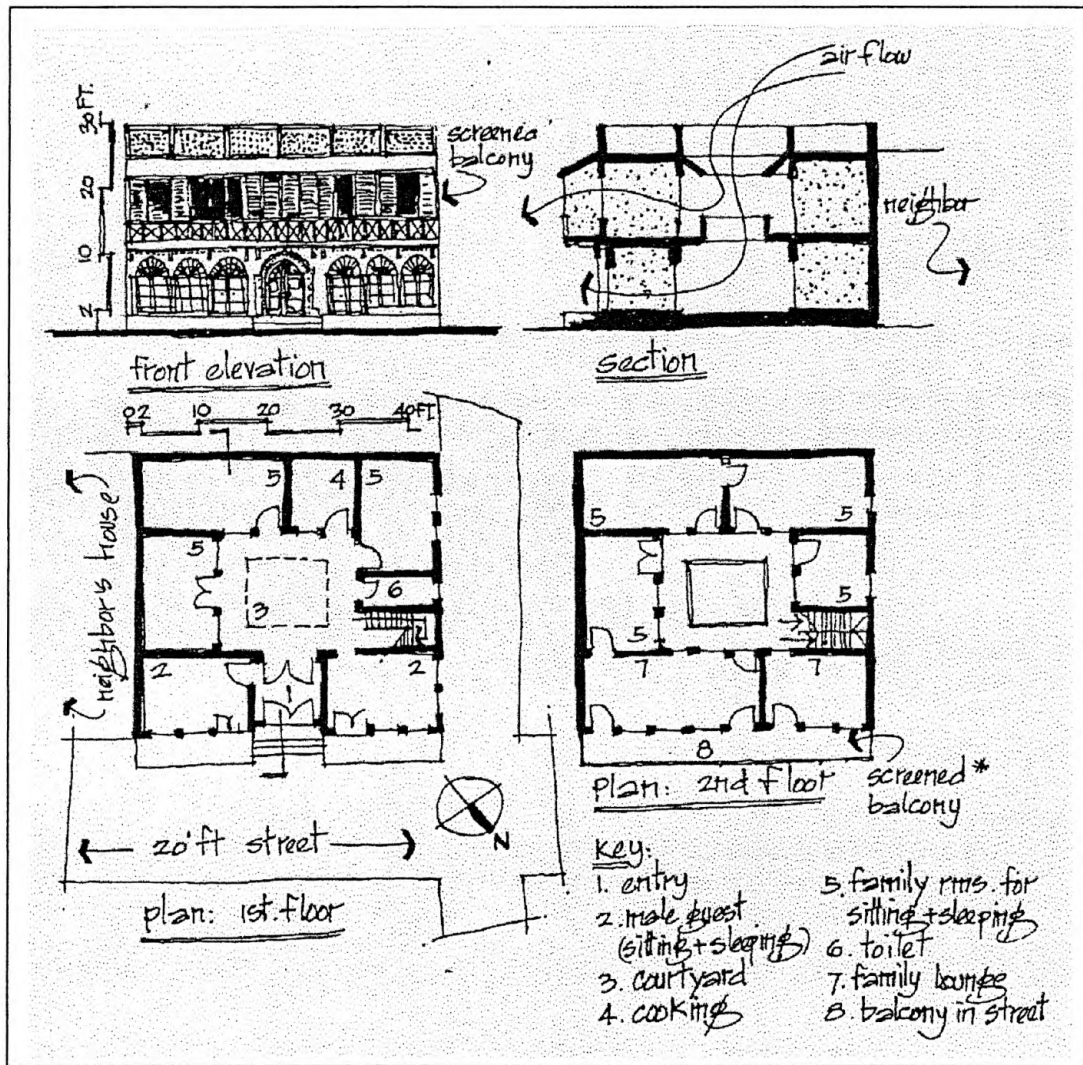 air flow
30 FT.
20
10
2
screened
balcony
neighbor
front elevation
section
0 2 10 20 30 40 FT.
neighbor's house
5
4
5
5
3
6
2
1
2
5
5
5
5
7
7
8
N
20' ft street
plan: 1st. floor
plan: 2nd floor
screened *
balcony
key:
1. entry
2. male guest
(sitting + sleeping)
3. courtyard
4. cooking
5. family rms. for
sitting + sleeping
6. toilet
7. family lounge
8. balcony in street